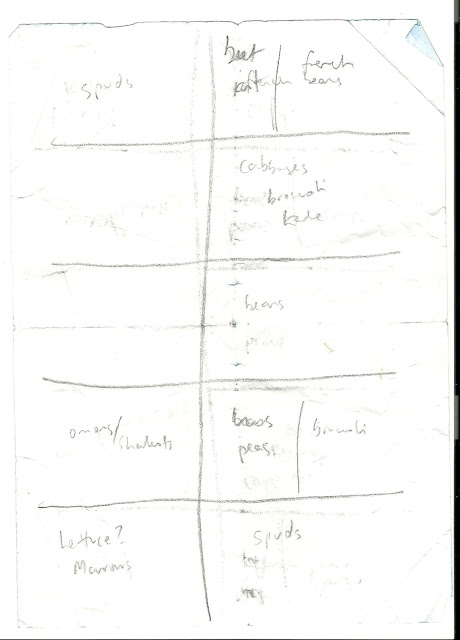 spuds
beet
french
french beans
cabbages
broccoli
kale
beans
peas
onions/
shallots
beans
peas
broccoli
Lettuce?
Marrows
spuds